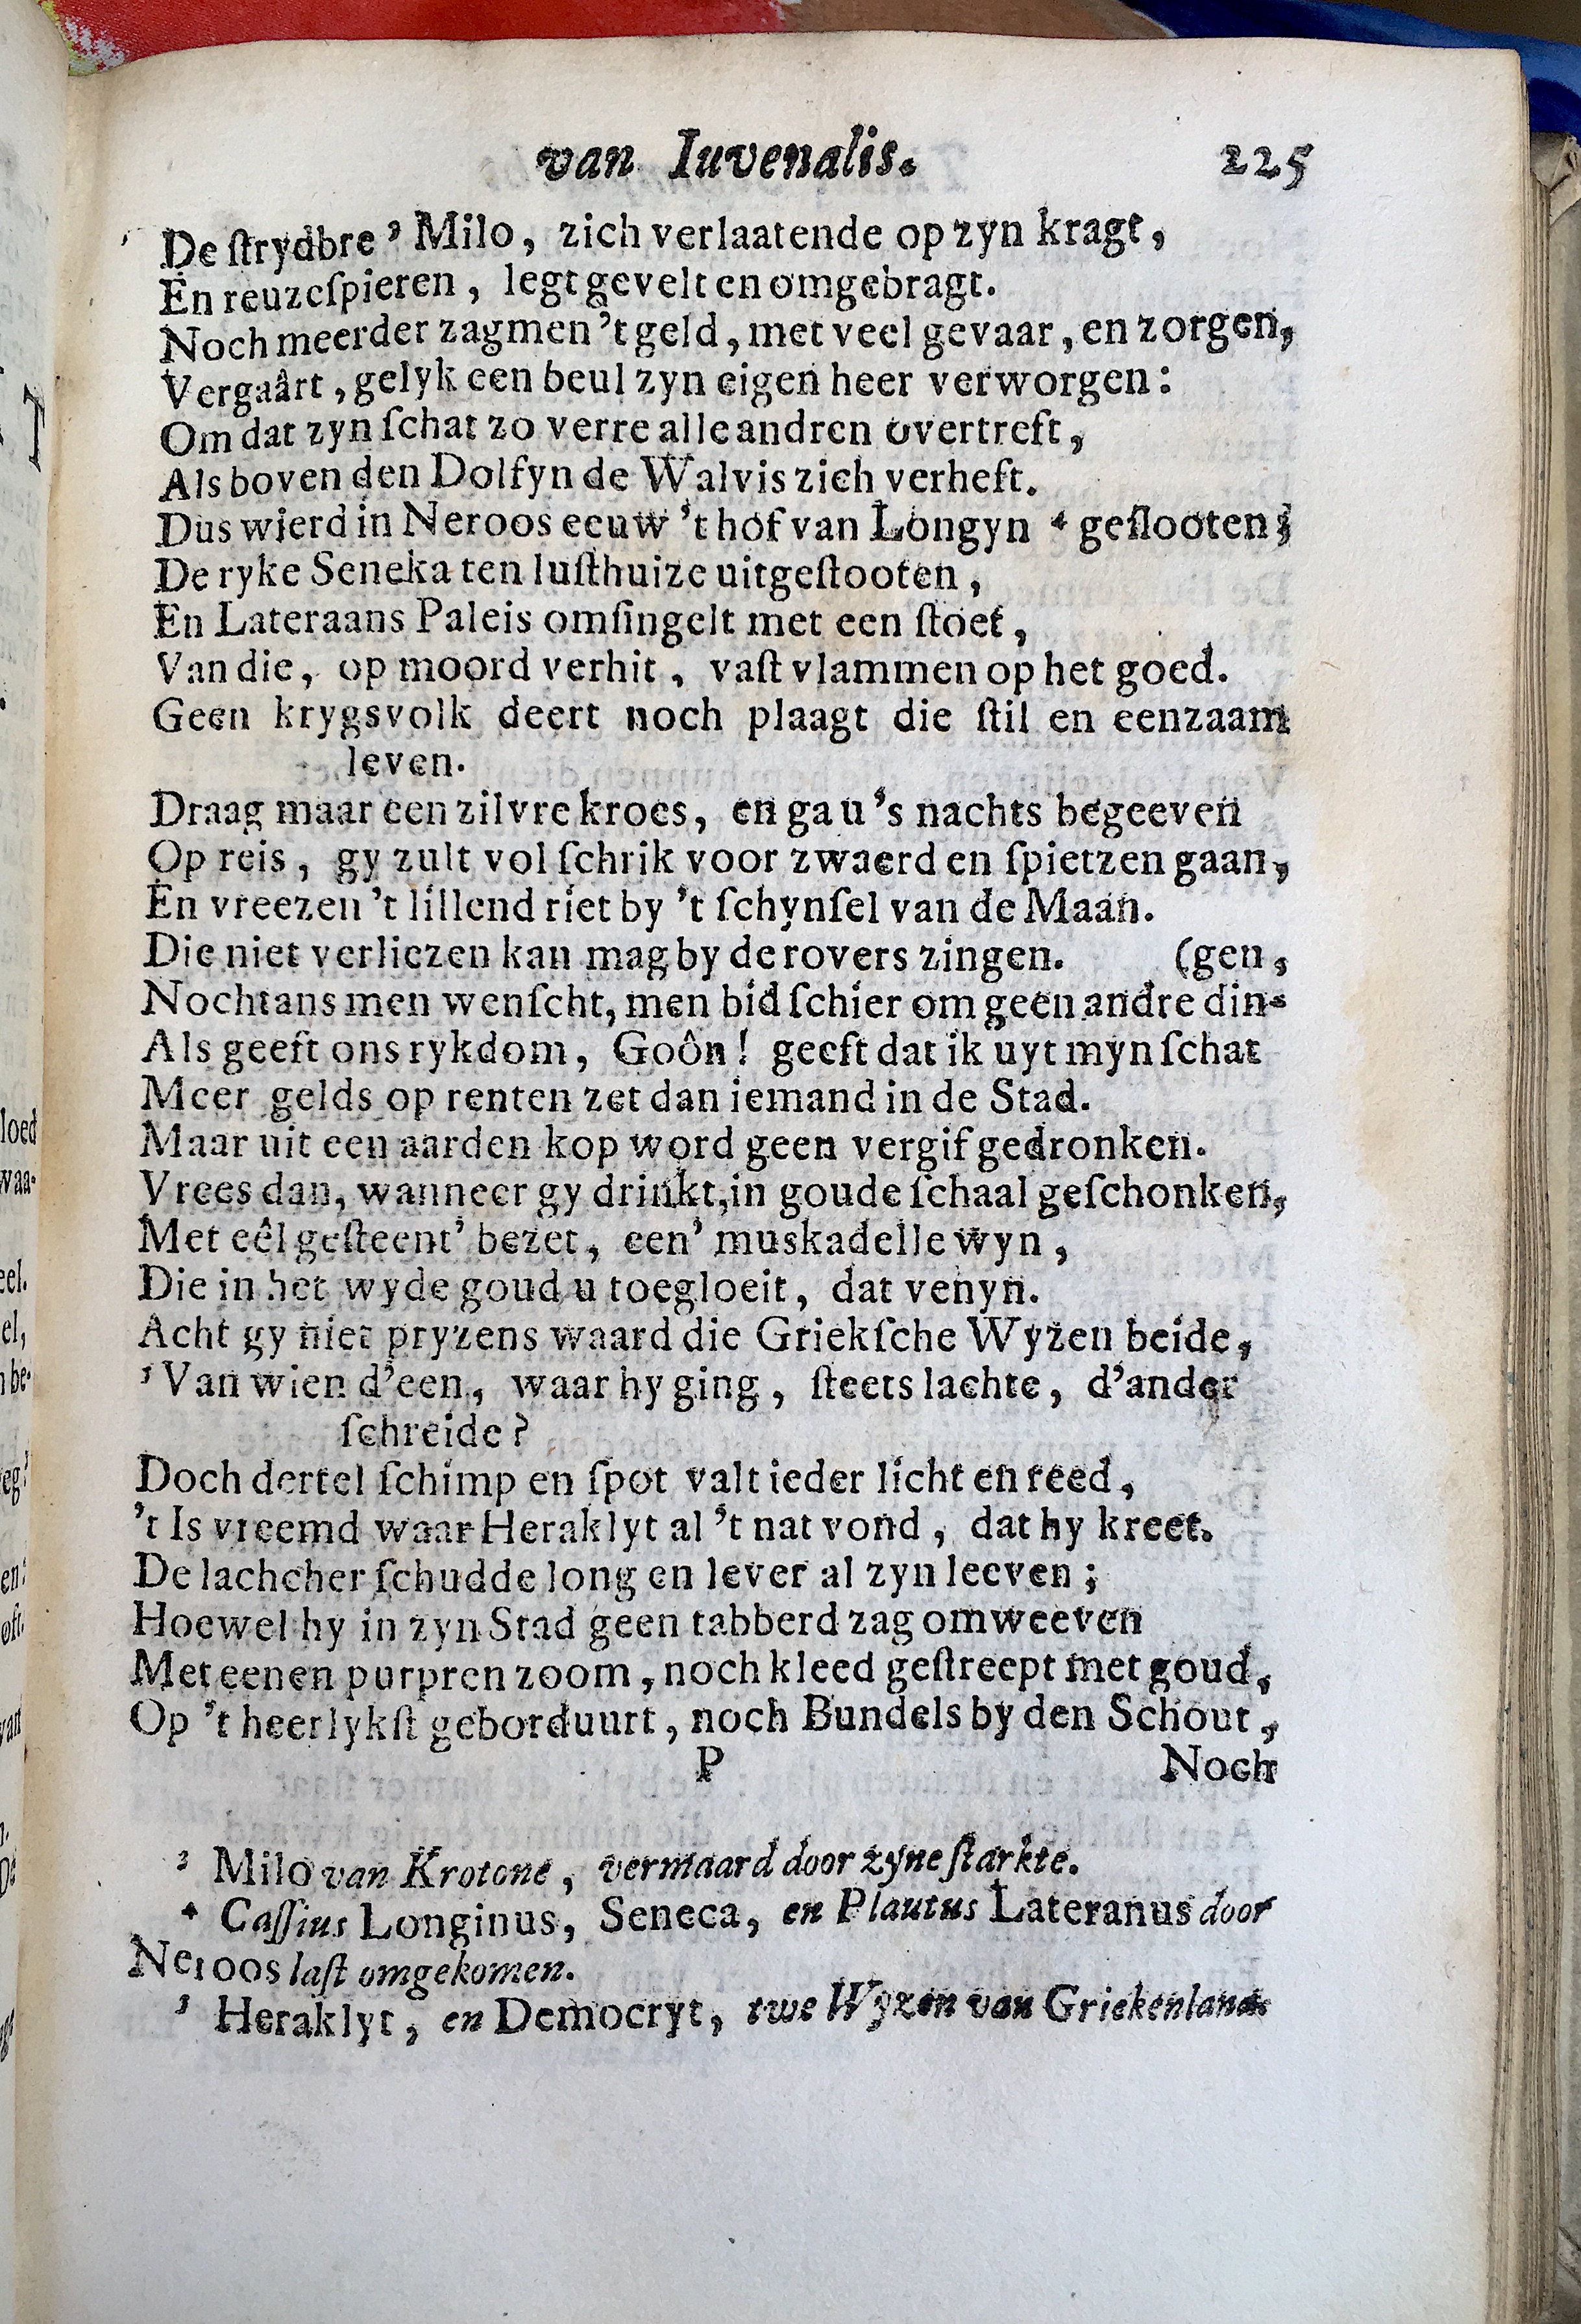 van Iuvenalis. 225
De ſtrydbre ³ Milo, zich verlaatende op zyn kragt,
En reuzeſpieren, legt gevelt en omgebragt.
Noch meerder zagmen 't geld, met veel gevaar, en zorgen,
Vergaârt, gelyk een beul zyn eigen heer verworgen:
Om dat zyn ſchat zo verre alle andren overtreft,
Als boven den Dolfyn de Walvis zich verheft.
Dus wierd in Neroos eeuw 't hof van Longyn ⁴ geſlooten;
De ryke Seneka ten luſthuize uitgeſtooten,
En Lateraans Paleis omſingelt met een ſtoet,
Van die, op moord verhit, vaſt vlammen op het goed.
Geen krygsvolk deert noch plaagt die ſtil en eenzaam
leven.
Draag maar een zilvre kroes, en ga u 's nachts begeeven
Op reis, gy zult vol ſchrik voor zwaerd en ſpietzen gaan,
En vreezen 't lillend riet by 't ſchynſel van de Maan.
Die niet verliezen kan mag by de rovers zingen. (gen,
Nochtans men wenſcht, men bid ſchier om geen andre din-
Als geeft ons rykdom, Goôn! geeft dat ik uyt myn ſchat
Meer gelds op renten zet dan iemand in de Stad.
Maar uit een aarden kop word geen vergif gedronken.
Vrees dan, wanneer gy drinkt, in goude ſchaal geſchonken,
Met eêl geſteent' bezet, een' muskadelle wyn,
Die in het wyde goud u toegloeit, dat venyn.
Acht gy niet pryzens waard die Griekſche Wyzen beide,
⁵ Van wien d'een, waar hy ging, ſteets lachte, d'ander
ſchreide?
Doch dertel ſchimp en ſpot valt ieder licht en reed,
't Is vreemd waar Heraklyt al 't nat vond, dat hy kreet.
De lachcher ſchudde long en lever al zyn leeven;
Hoewel hy in zyn Stad geen tabberd zag omweeven
Met eenen purpren zoom, noch kleed geſtreept met goud,
Op 't heerlykſt geborduurt, noch Bundels by den Schout,
P Noch
³ Milo van Krotone, vermaard door zyne ſtarkte.
⁴ Caſſius Longinus, Seneca, en Plautus Lateranus door
Neroos laſt omgekomen.
⁵ Heraklyt, en Democryt, twe Wyzen van Griekenland.